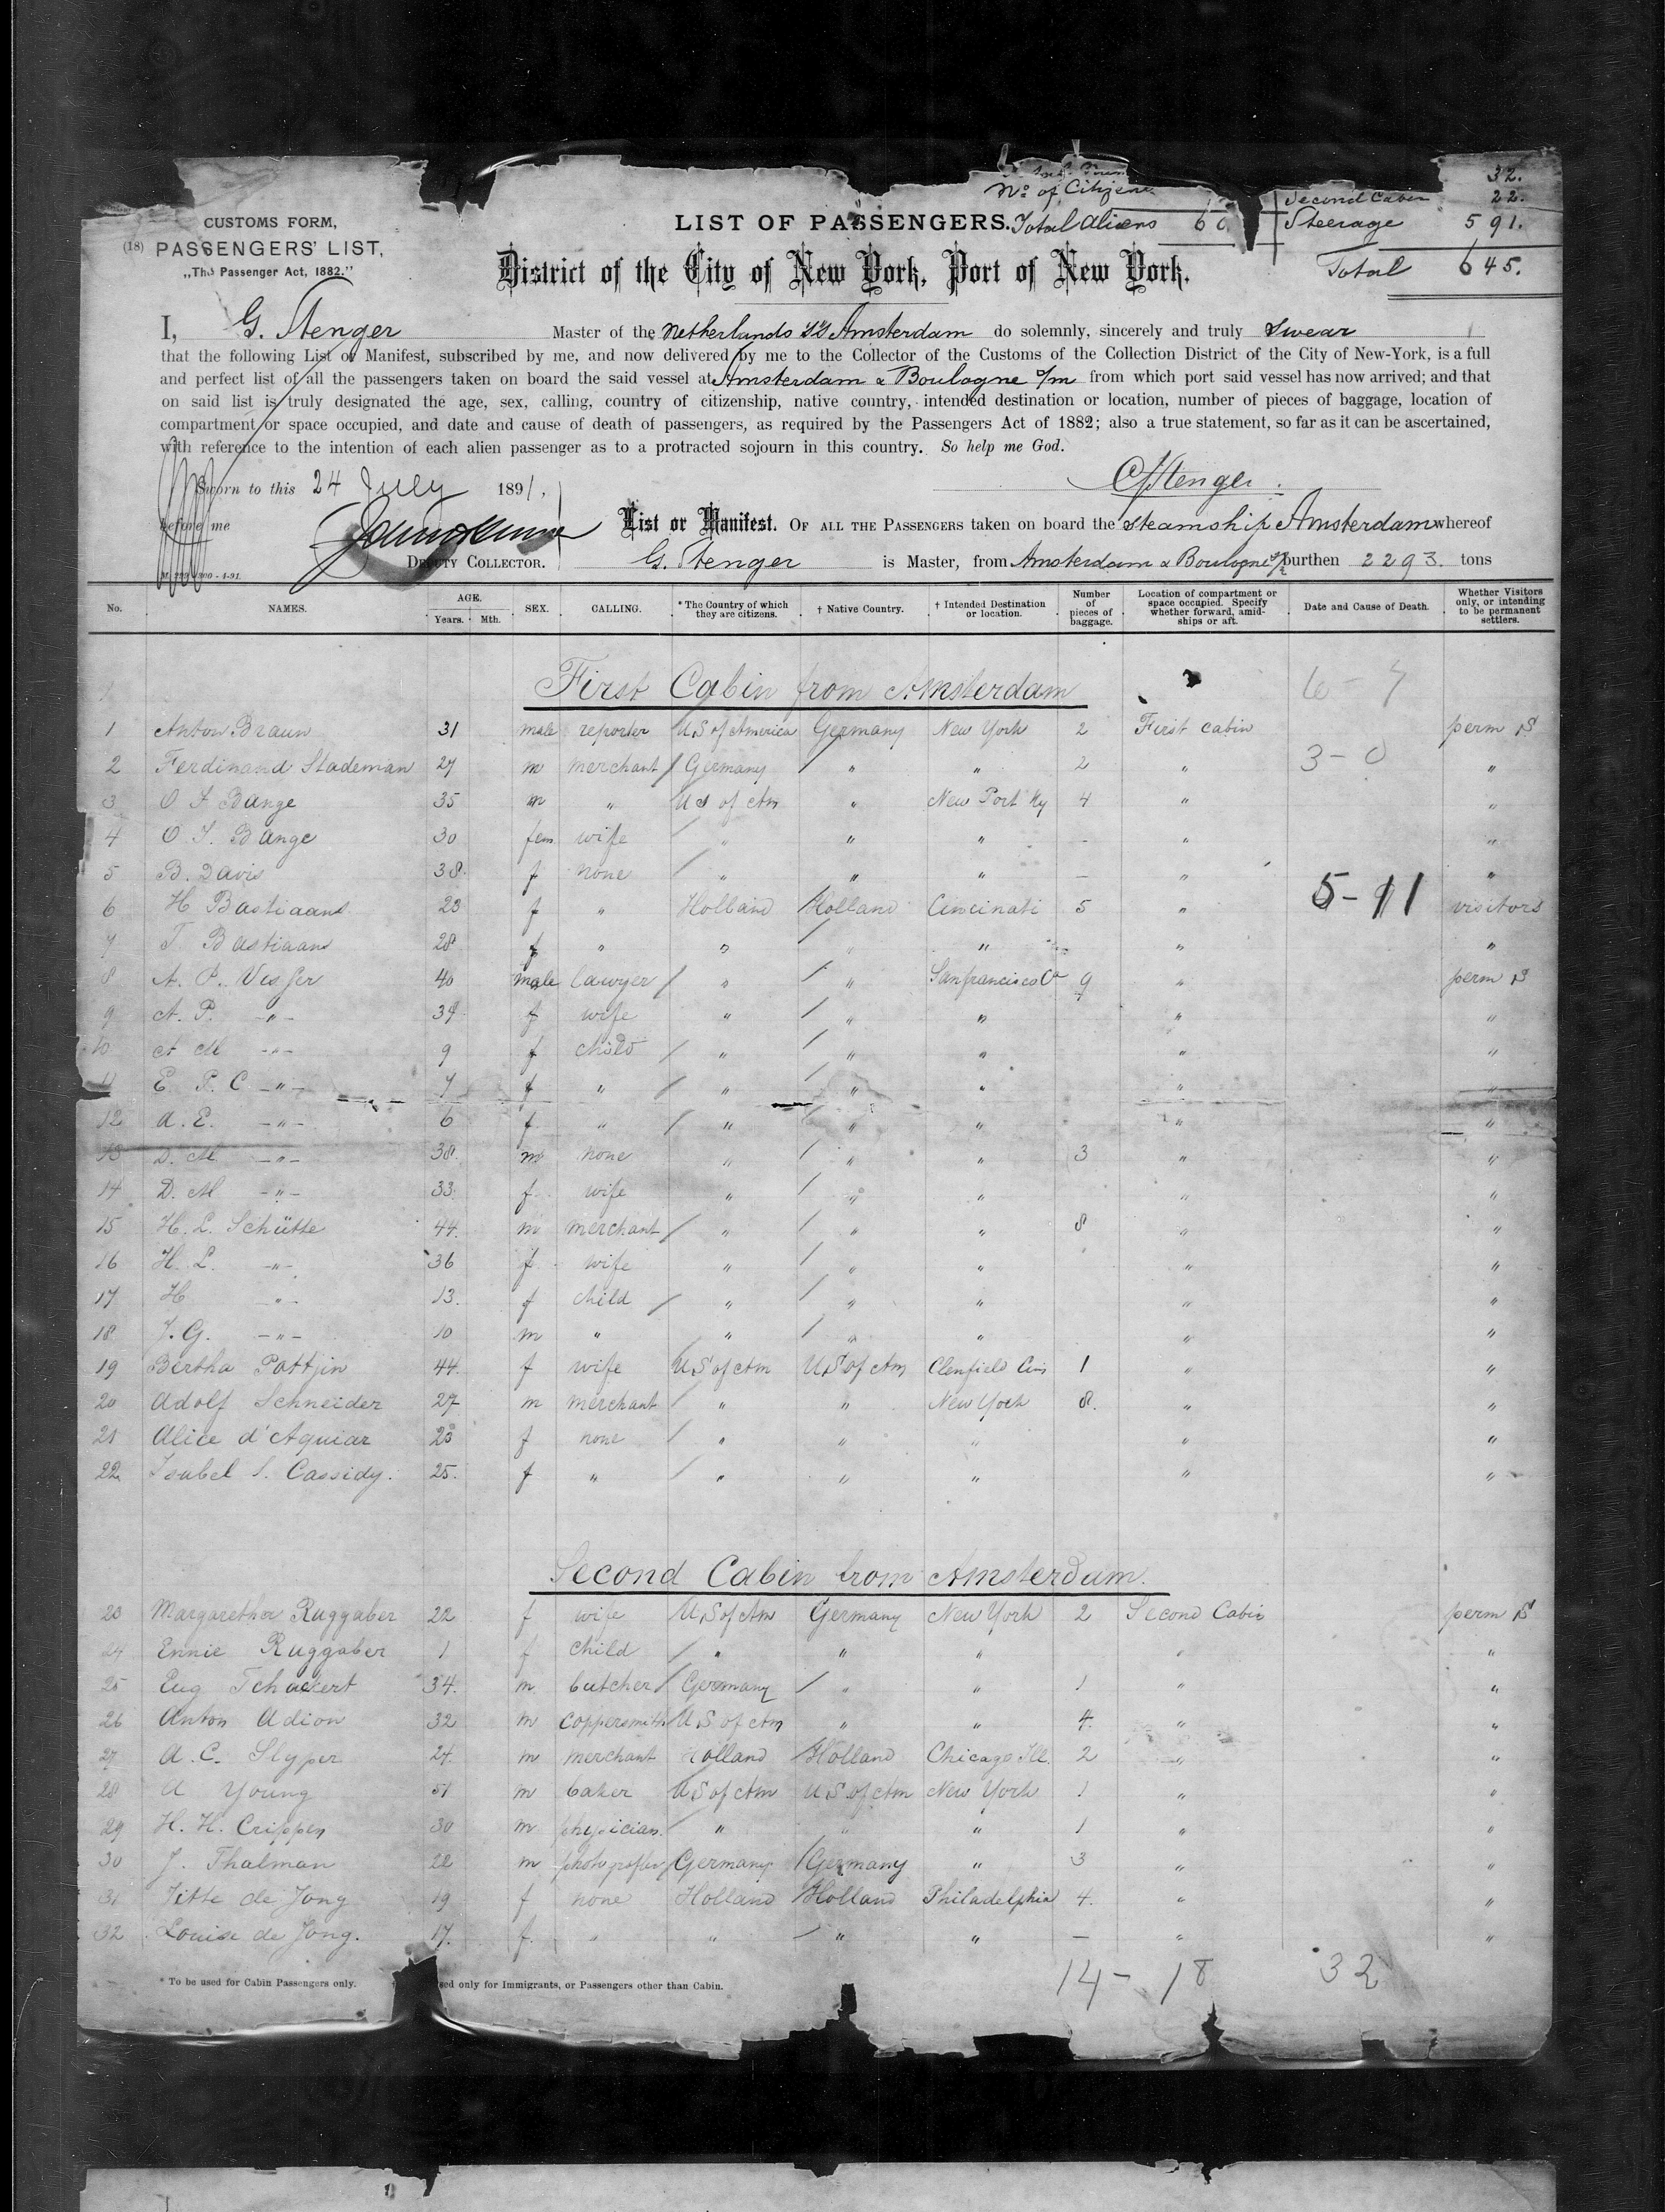 No of Citizens
32.
Second Cabin 22.
CUSTOMS FORM,
LIST OF PASSENGERS. Total Aliens 60
Steerage 591.
(18) PASSENGERS' LIST,
„The Passenger Act, 1882.”
District of the City of New York, Port of New York.
Total 645.
I, G. Stenger Master of the Netherlands SS Amsterdam do solemnly, sincerely and truly swear
that the following List of Manifest, subscribed by me, and now delivered by me to the Collector of the Customs of the Collection District of the City of New-York, is a full
and perfect list of all the passengers taken on board the said vessel at Amsterdam & Boulogne s/m from which port said vessel has now arrived; and that
on said list is truly designated the age, sex, calling, country of citizenship, native country, intended destination or location, number of pieces of baggage, location of
compartment or space occupied, and date and cause of death of passengers, as required by the Passengers Act of 1882; also a true statement, so far as it can be ascertained,
with reference to the intention of each alien passenger as to a protracted sojourn in this country. So help me God.
GStenger.
Sworn to this 24 July 1891,
before me
List or Manifest. OF ALL THE PASSENGERS taken on board the steamship Amsterdam whereof
DEPUTY COLLECTOR. G. Stenger is Master, from Amsterdam & Boulogne burthen 2293. tons
No. NAMES. AGE. Years. Mth. SEX. CALLING. * The Country of which they are citizens. † Native Country. † Intended Destination or location. Number of pieces of baggage. Location of compartment or space occupied. Specify whether forward, amidships or aft. Date and Cause of Death. Whether Visitors only, or intending to be permanent settlers.
First Cabin from Amsterdam 6-7
1 Anton Braun 31 male reporter US of America Germany New York 2 First cabin perm S
2 Ferdinand Stademan 27 m merchant Germany " " 2 " 3-0 "
3 O F Bange 35 m " U S of Am " New Port Ky 4 " "
4 O F. Bange 30 fem wife " " " - " "
5 B. Davis 38. f none " " " - " "
6 H Bastiaans 23 f " Holland Holland Cincinati 5 " 5-11 visitors
7 T. Bastiaans 28 f " " " " " "
8 A. P. Visser 40 male lawyer " " Sanfrancisco Ca 9 " perm S
9 A. P. -"- 34 f wife " " " " "
10 A M -"- 9 f child " " " " "
11 E. P. C -"- 7 f " " " " " "
12 A. E. -"- 6 f " " " " " "
13 D. M -"- 38. m none " " " 3 " "
14 D. M -"- 33. f wife " " " " "
15 H. L. Schütte 44. m merchant " " " 8 " "
16 H. L. -"- 36 f wife " " " " "
17 H -"- 13. f child " " " " "
18 J. G. -"- 10 m " " " " " "
19 Bertha Pattjin 44. f wife US of Am US of Am Clenfield Cin 1 " "
20 Adolf Schneider 27 m merchant " " New York 8. " "
21 Alice d'Aquiar 23 f none " " " " "
22 Isabel S. Cassidy. 25. f " " " " " "
Second Cabin from Amsterdam.
23 Margarether Ruggaber 22 f wife US of Am Germany New York 2 Second Cabin perm S
24 Ennie Ruggaber 1 f child " " " " "
25 Eug Tchackert 34. m butcher Germany " " 1 " "
26 Anton Adion 32 m coppersmith US of Am " " 4. " "
27 A. C. Slyper 24. m merchant Holland Holland Chicago Ill. 2 " "
28 A Young 51 m baker US of Am US of Am New York 1 " "
29 H. H. Crippen 30 m physician. " " " 1 " "
30 J. Thalman 22 m Germany Germany " 3 " "
31 Titte de Jong 19 f none Holland Holland Philadelphia 4. " "
32 Louise de Jong. 17. f. " " " " - " "
* To be used for Cabin Passengers only. sed only for Immigrants, or Passengers other than Cabin.
14- 18 32